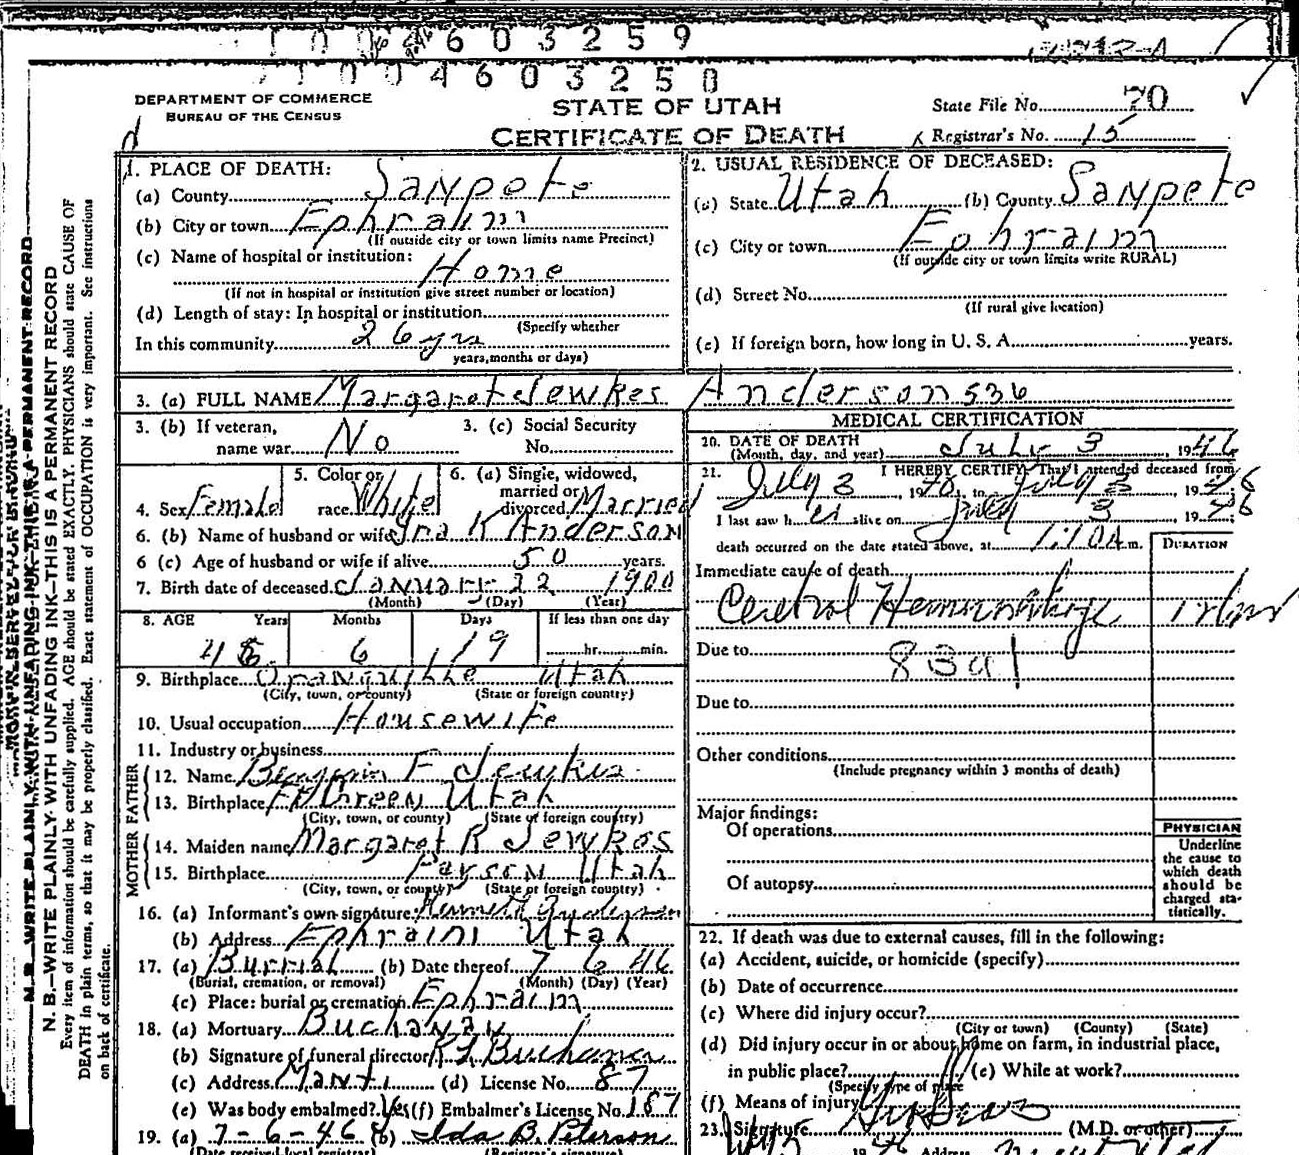 1004603259
21004603250
DEPARTMENT OF COMMERCE
BUREAU OF THE CENSUS
STATE OF UTAH
CERTIFICATE OF DEATH
State File No. 70
Registrar's No. 15
1. PLACE OF DEATH:
(a) County Sanpete
(b) City or town Ephraim
(If outside city or town limits name Precinct)
(c) Name of hospital or institution:
Home
(If not in hospital or institution give street number or location)
(d) Length of stay: In hospital or institution
(Specify whether
In this community 26 yrs
years, months or days)
2. USUAL RESIDENCE OF DECEASED:
(a) State Utah (b) County Sanpete
(c) City or town Ephraim
(If outside city or town limits write RURAL)
(d) Street No.
(If rural give location)
(e) If foreign born, how long in U. S. A. years.
3. (a) FULL NAME Margaret Jewkes Anderson 536
3. (b) If veteran,
name war No
3. (c) Social Security
No.
4. Sex Female
5. Color or
race White
6. (a) Single, widowed,
married or
divorced Married
6. (b) Name of husband or wife Ira K Anderson
6 (c) Age of husband or wife if alive 50 years.
7. Birth date of deceased January 22 1900
(Month) (Day) (Year)
8. AGE Years Months Days If less than one day
46 6 19 hr. min.
9. Birthplace Orangeville Utah
(City, town, or county) (State or foreign country)
10. Usual occupation Housewife
11. Industry or business
FATHER
12. Name Benjamin F Jewkes
13. Birthplace Ft Green Utah
(City, town, or county) (State of foreign country)
MOTHER
14. Maiden name Margaret R Jewkes
15. Birthplace Payson Utah
(City, town, or county) (State or foreign country)
16. (a) Informant's own signature Anderson
(b) Address Ephraim Utah
17. (a) Burrial (b) Date thereof 7 6 46
(Burial, cremation, or removal) (Month) (Day) (Year)
(c) Place: burial or cremation Ephraim
18. (a) Mortuary Buchanan
(b) Signature of funeral director Buchanan
(c) Address Manti (d) License No. 87
(e) Was body embalmed? Yes (f) Embalmer's License No. 187
19. (a) 7-6-46 (b) Ida B. Peterson
(Date received local registrar) (Registrar's signature)
MEDICAL CERTIFICATION
20. DATE OF DEATH
(Month, day, and year) July 3 1946
21. I HEREBY CERTIFY, That I attended deceased from
July 3, 19 to July 3 1946
I last saw her alive on July 3 1946
death occurred on the date stated above, at m.
DURATION
Immediate cause of death
Cerebral Hemorrhage
Due to 83a1
Due to
Other conditions
(Include pregnancy within 3 months of death)
Major findings:
Of operations
Of autopsy
PHYSICIAN
Underline
the cause to
which death
should be
charged sta-
tistically.
22. If death was due to external causes, fill in the following:
(a) Accident, suicide, or homicide (specify)
(b) Date of occurrence
(c) Where did injury occur?
(City or town) (County) (State)
(d) Did injury occur in or about home on farm, in industrial place,
in public place? (e) While at work?
(Specify type of place
(f) Means of injury
23. Signature (M.D. or other)
Address
N. B.—WRITE PLAINLY WITH UNFADING INK—THIS IS A PERMANENT RECORD
Every item of information should be carefully supplied. AGE should be stated EXACTLY. PHYSICIANS should state CAUSE OF
DEATH in plain terms, so that it may be properly classified. Exact statement of OCCUPATION is very important. See instructions
on back of certificate.
N. B.—WRITE PLAINLY WITH UNFADING INK—THIS IS A PERMANENT RECORD